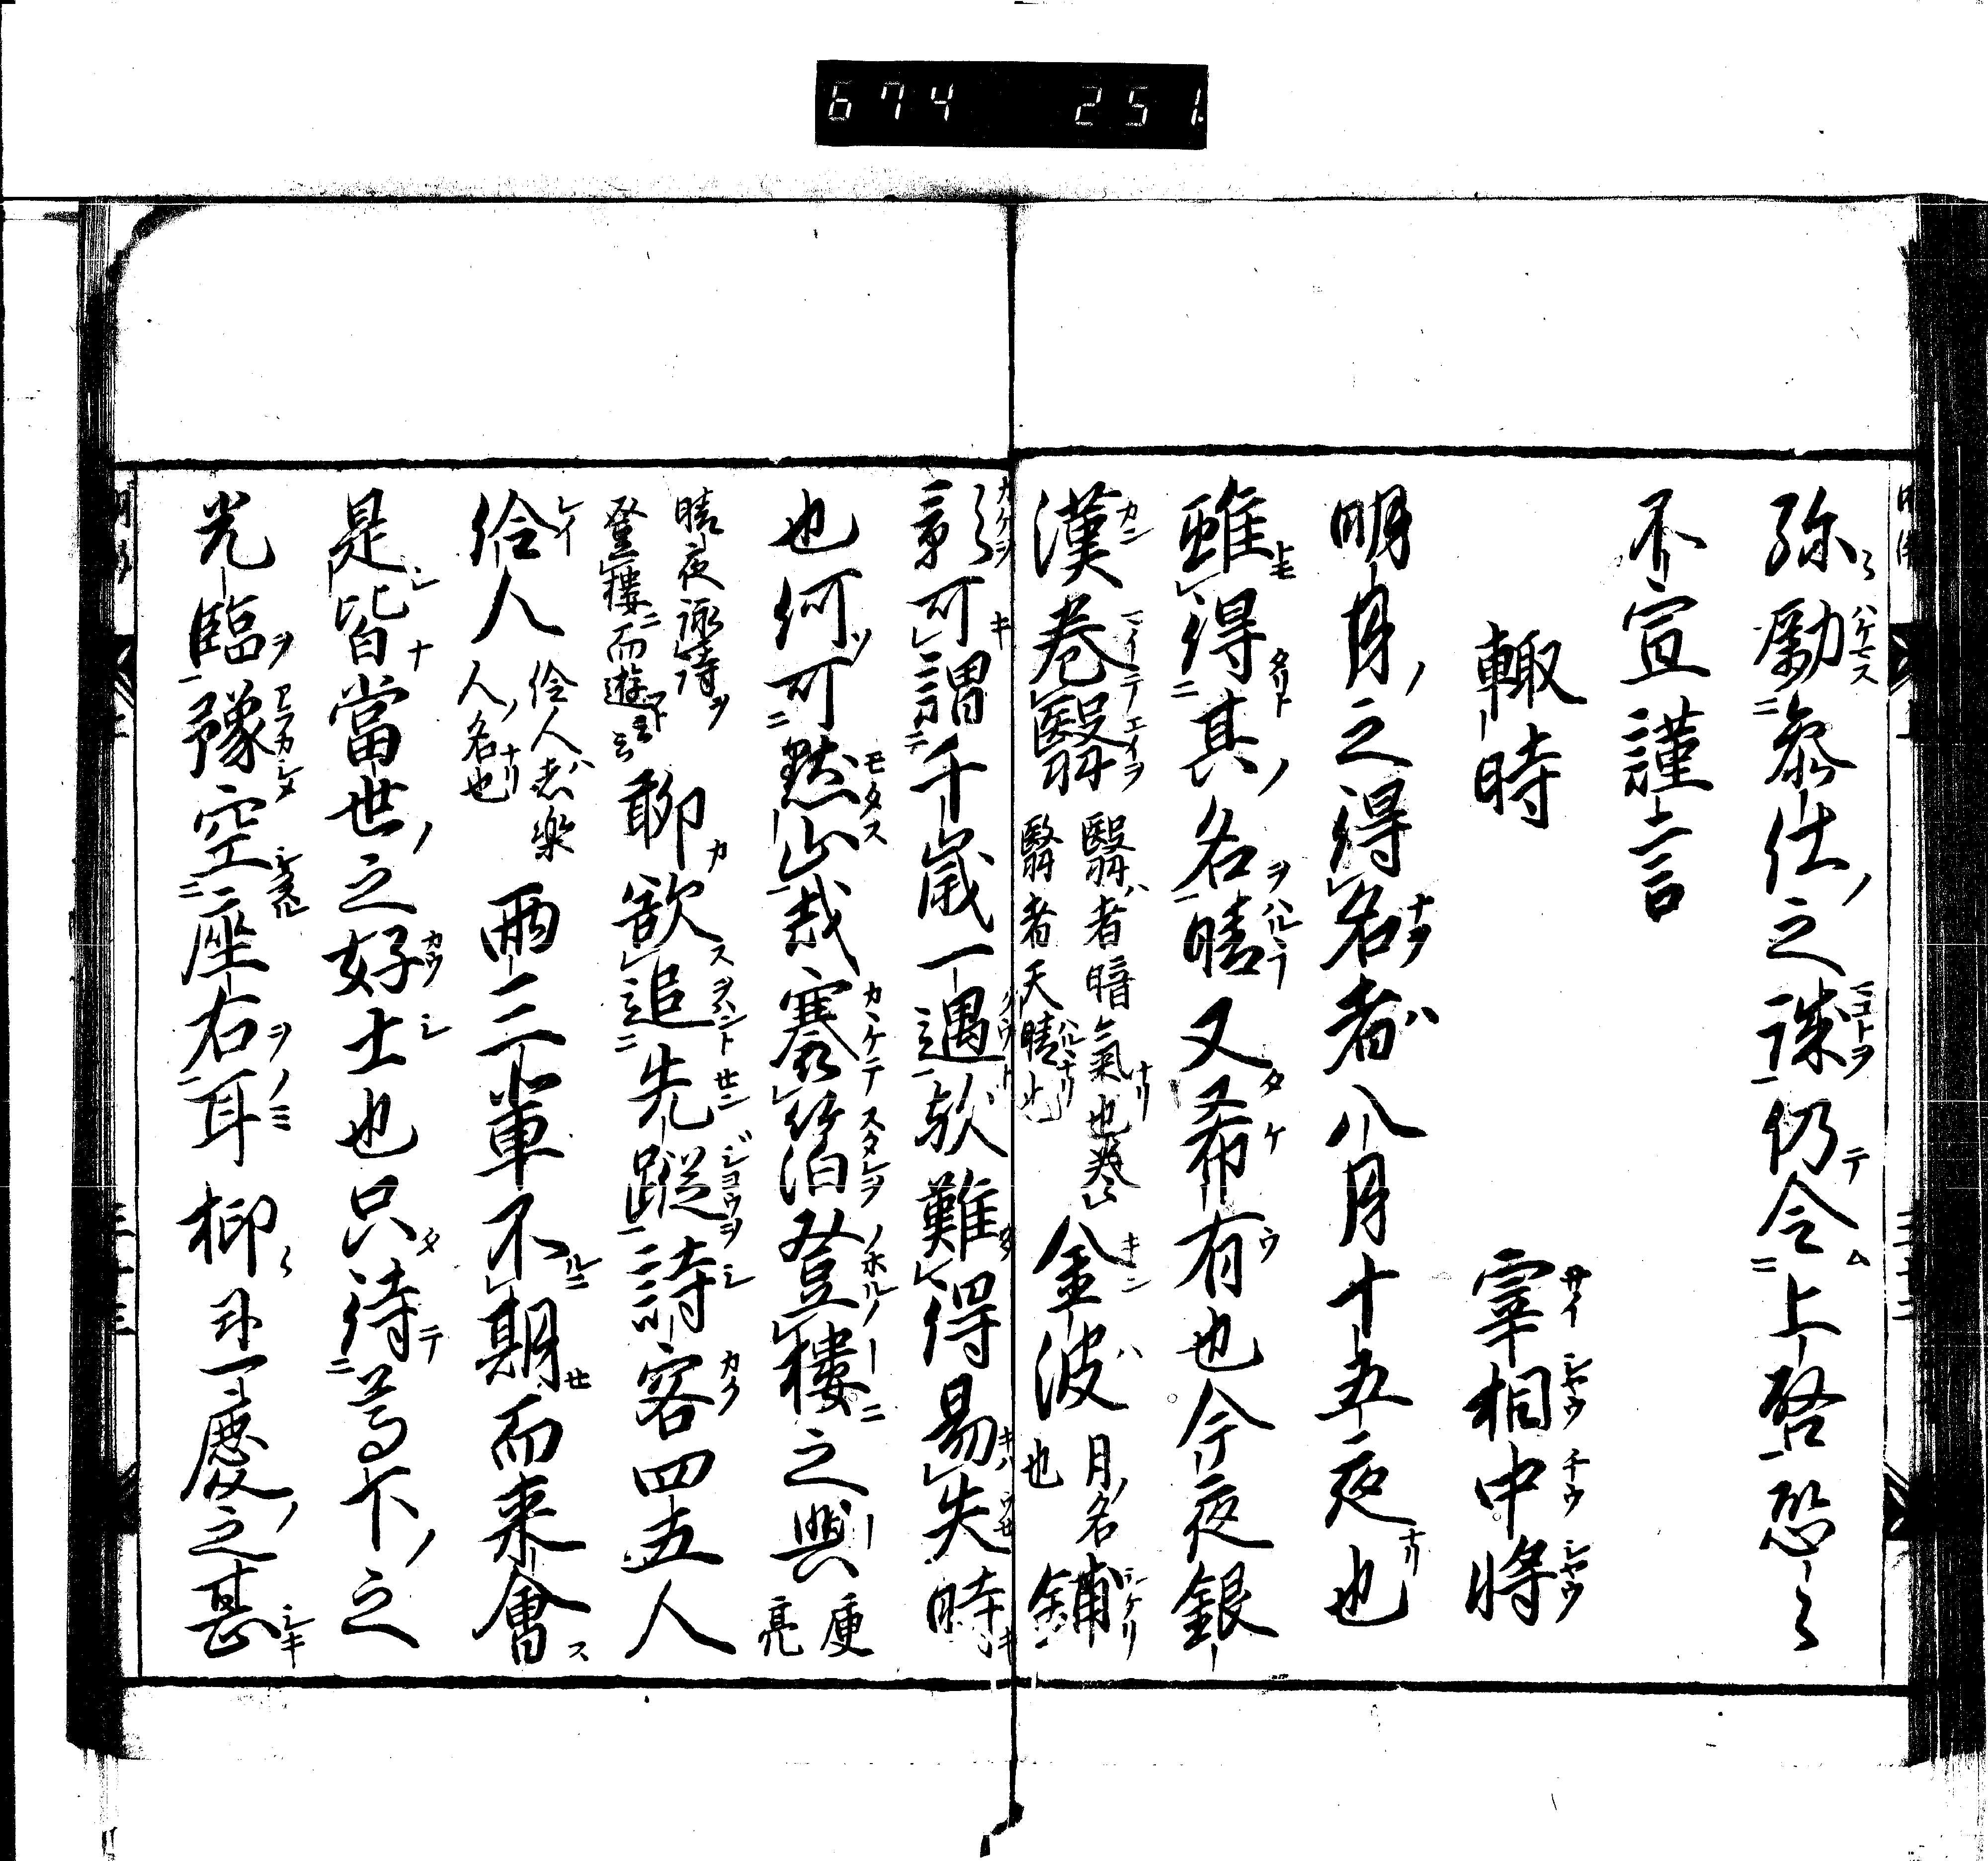 674 251
弥励参仕之誠仍令上啓恐々
不宣謹言
輙時 宰相中将
明月之得名者八月十五夜也
雖得其名晴又希有也今夜銀
漢巻翳 翳者暗氣也巻
翳者天晴也 金波 月名
也 鋪
影可謂千歳一遇欤難得易失時
也何可黙止哉褰箔登樓之興 庾
亮
晴夜詠詩
登樓而遊 聊欲追先蹤詩客四五人
伶人 伶人者楽
人名也 両三輩不期而来會
是皆當世之好士也只待芳下之
光臨豫空座右耳抑 一慶之甚